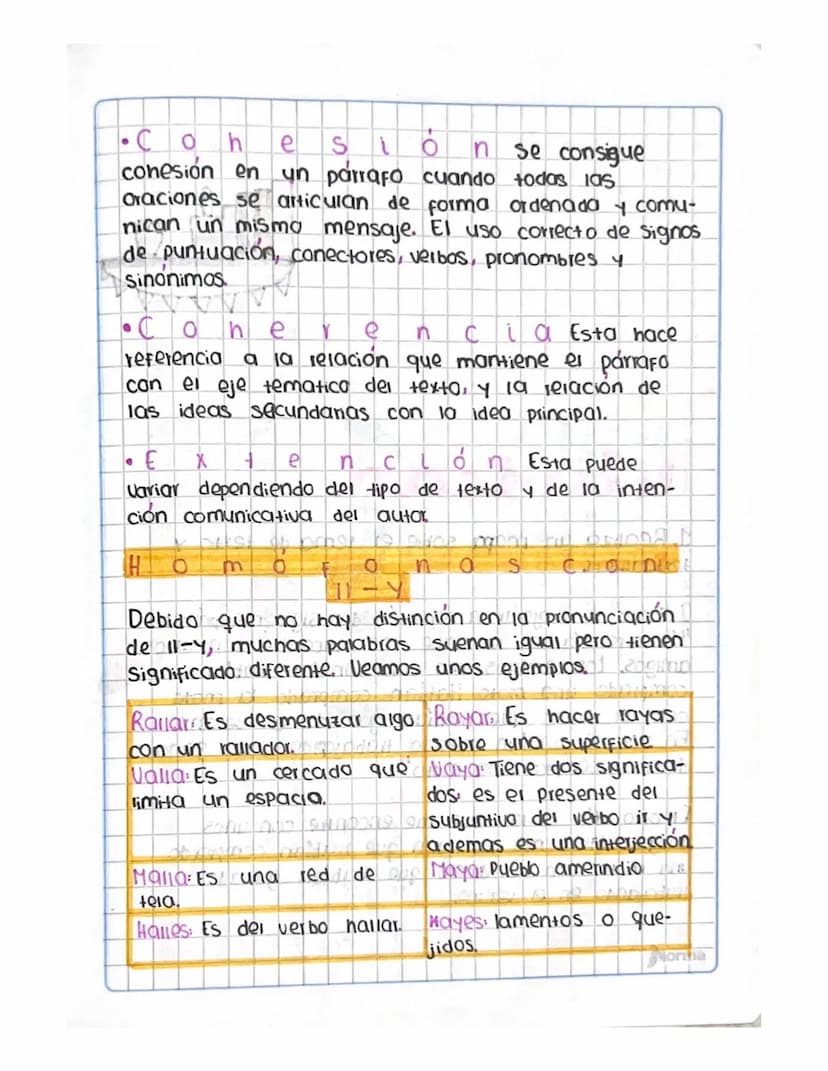 •Cohesión se consigue
cohesión en un párrafo cuando todas las
oraciones se articulan de forma ordenada y comu-
nican un mismo mensaje. El uso correcto de signos
de puntuación, conectores, verbos, pronombres y
sinónimos.
•Coherencia Esta hace
referencia a la relación que mantiene el párrafo
con el eje tematico del texto, y la relación de
las ideas secundarias con la idea principal.
•Extención Esta puede
variar dependiendo del tipo de texto y de la inten-
ción comunicativa del autor.
Homófonas con
ll-y
Debido que no hay distinción en la pronunciación
de ll-y, muchas palabras suenan igual pero tienen
significado diferente. Veamos unos ejemplos.
Rallar: Es desmenuzar algo
con un rallador.
Rayar: Es hacer rayas
sobre una superficie
Valla: Es un cercado que
limita un espacio.
Vaya: Tiene dos significa-
dos: es el presente del
subjuntivo del verbo ir y
ademas es una interjección
Malla: Es una red de
tela.
Maya: Pueblo amerindio
Halles: Es del verbo hallar.
Hayes: lamentos o que-
jidos.
Norma